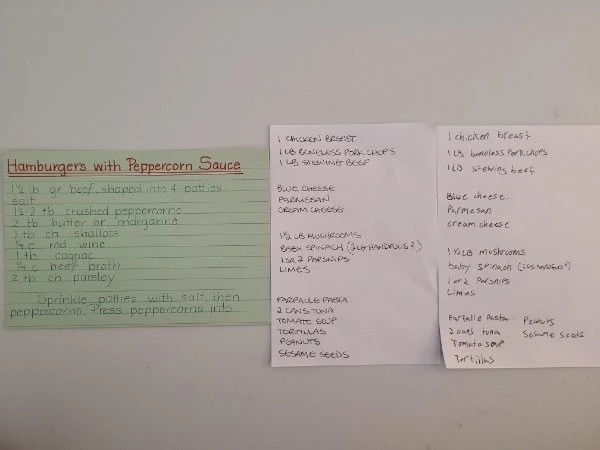 Hamburgers with Peppercorn Sauce
1½ lb gr beef, shaped into 4 patties
salt
1½-2 tb crushed peppercorns
2 tb butter or margarine
1 tb ch shallots
¼ c red wine
1 tb cognac
¼ c beef broth
2 tb ch parsley
Sprinkle patties with salt, then
peppercorns. Press peppercorns into
1 CHICKEN BREAST
1 LB BONELESS PORK CHOPS
1 LB STEWING BEEF
BLUE CHEESE
PARMESAN
CREAM CHEESE
1½ LB MUSHROOMS
BABY SPINACH (2 LG HANDFULS?)
1 OR 2 PARSNIPS
LIMES
FARFALLE PASTA
2 CANS TUNA
TOMATO SOUP
TORTILLAS
PEANUTS
SESAME SEEDS
1 chicken breast
1 LB boneless Pork chops
1 LB stewing beef
Blue cheese
Parmesan
cream cheese
1½ LB mushrooms
baby spinach (2 LG handfuls?)
1 or 2 Parsnips
Limes
Farfalle Pasta Peanuts
2 cans tuna Sesame Seeds
Tomato soup
Tortillas